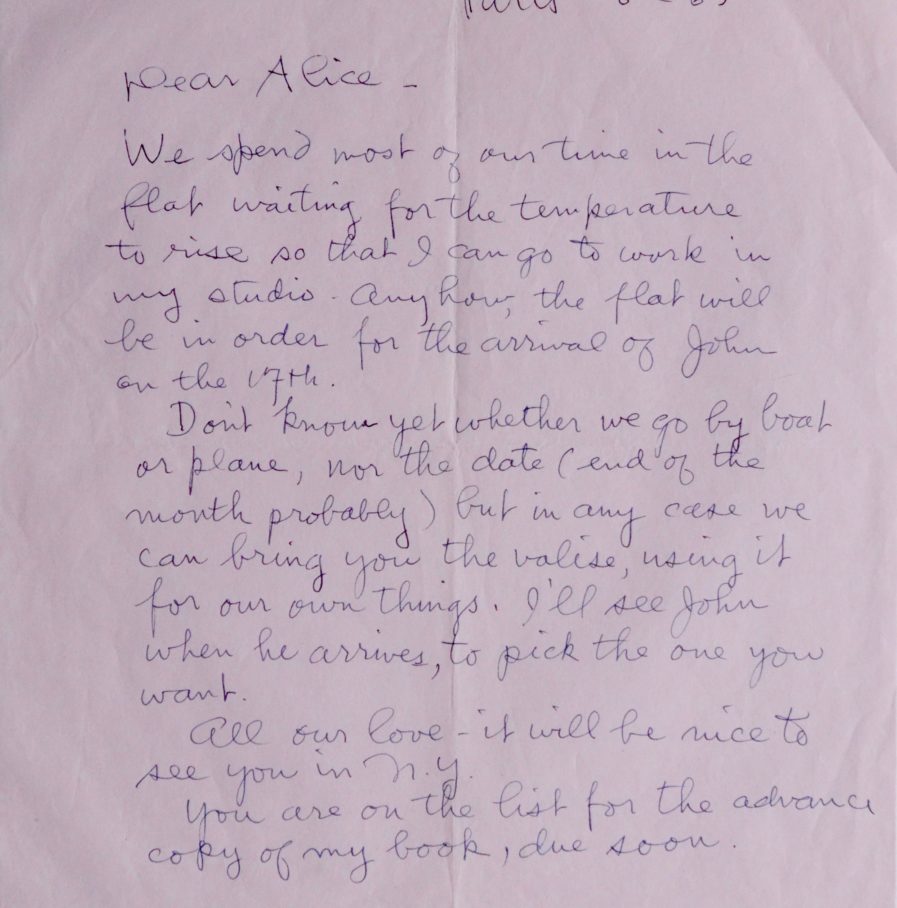 Paris
Dear Alice -
We spend most of our time in the
flat waiting for the temperature
to rise so that I can go to work in
my studio. Anyhow, the flat will
be in order for the arrival of John
on the 17th.
Don't know yet whether we go by boat
or plane, nor the date (end of the
month probably) but in any case we
can bring you the valise, using it
for our own things. I'll see John
when he arrives, to pick the one you
want.
All our love - it will be nice to
see you in N.Y.
You are on the list for the advance
copy of my book, due soon.